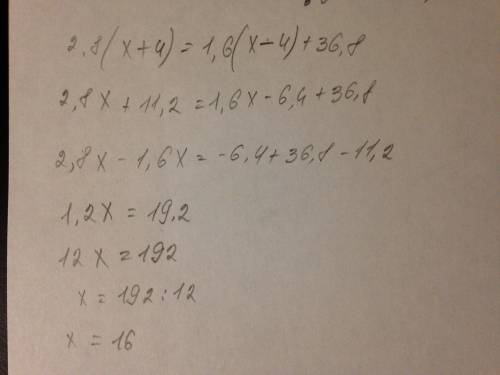 2.8(x+4)=1,6(x-4)+36,8
2,8x+11,2=1,6x-6,4+36,8
2,8x-1,6x=-6,4+36,8-11,2
1,2x=19.2
12x=192
x=192:12
x=16